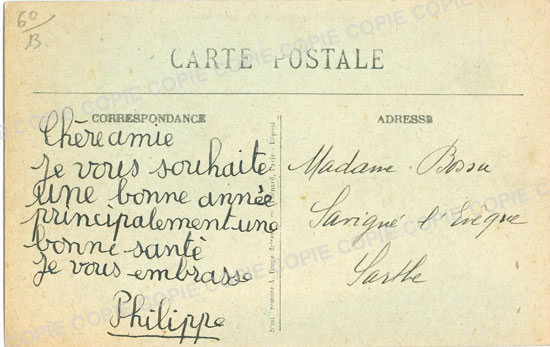 60/B
CARTE POSTALE
CORRESPONDANCE
Chère amie
Je vous souhaite
une bonne année
principalement une
bonne santé
Je vous embrasse
Philippe
ADRESSE
Madame Bossu
Savigné l'Evêque
Sarthe
COPIE COPIE COPIE COPIE COPIE